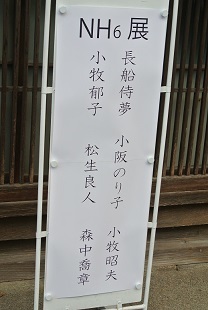 NH6展
長船侍夢 小阪のり子 小牧昭夫
小牧郁子 松生良人 森中喬章